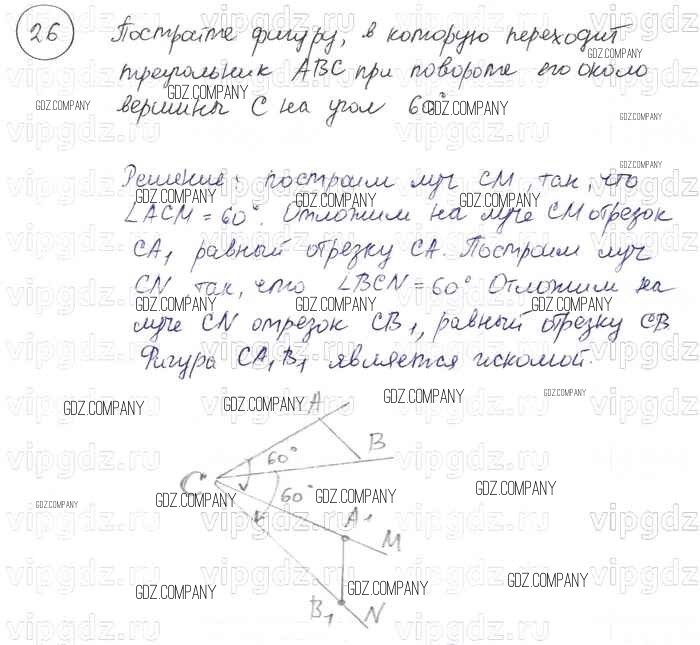 26
Постройте фигуру, в которую переходит
треугольник ABC при повороте его около
вершины C на угол 60°
Решение: построим луч CM, так, что
∠ACM = 60°. Отложим на луче CM отрезок
CA₁, равный отрезку CA. Построим луч
CN так, что ∠BCN = 60° Отложим на
луче CN отрезок CB₁, равный отрезку CB
Фигура CA₁B₁ является искомой.
A
B
60°
C
60°
A₁
M
B₁
N
GDZ.COMPANY
vipgdz.ru